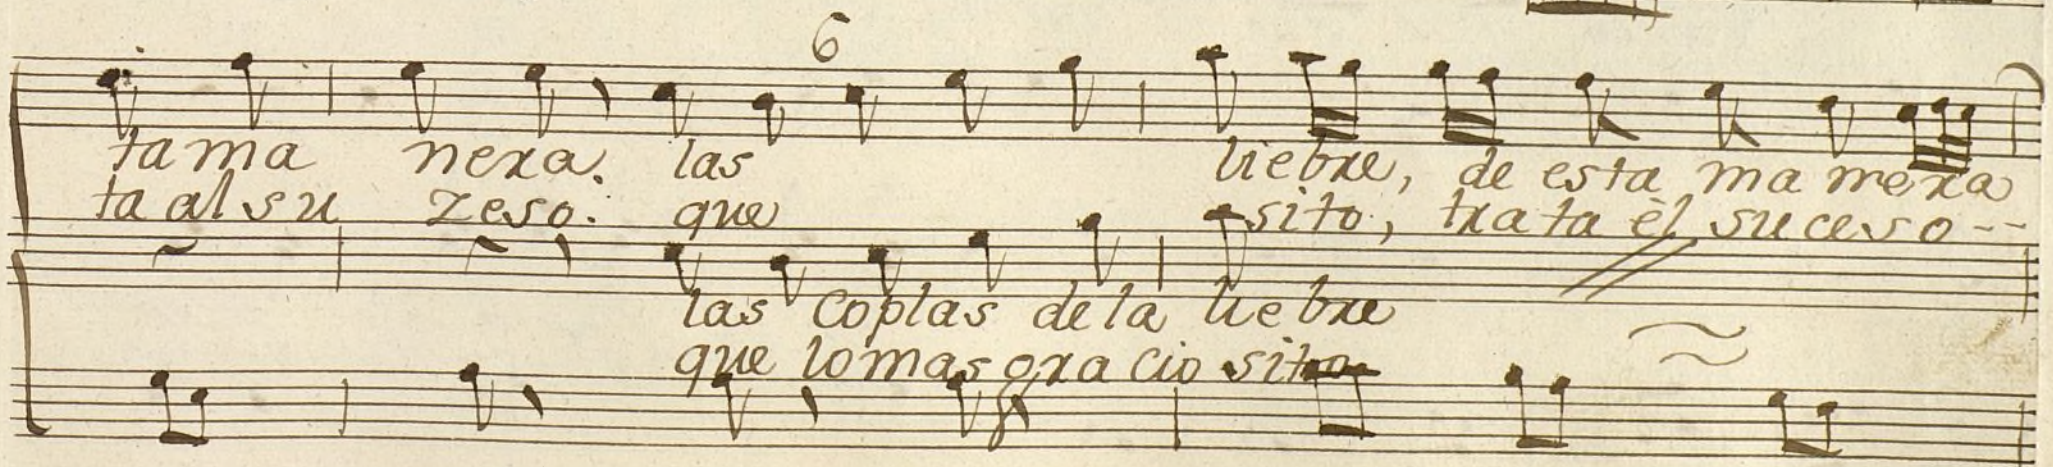 6
ta ma nera. las liebre, de esta ma nera
ta al su zeso. que sito, trata èl suceso--
las coplas de la liebre
que lo mas gracio sito